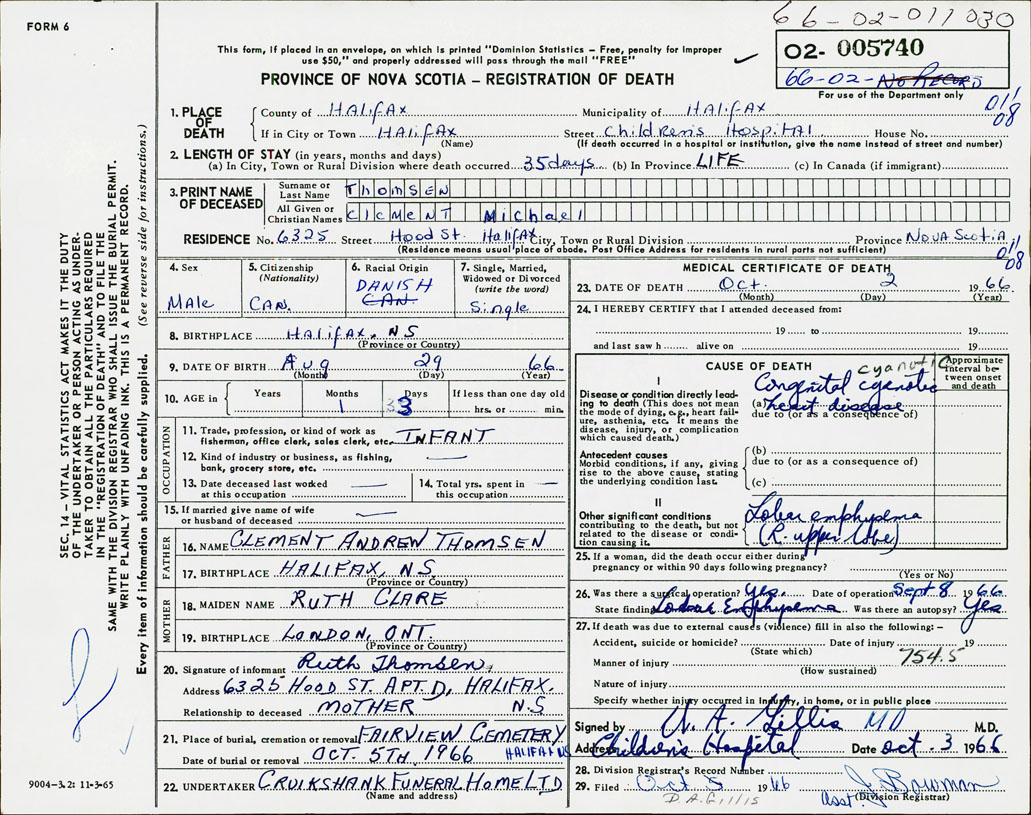 66-02-011030
FORM 6
This form, if placed in an envelope, on which is printed "Dominion Statistics – Free, penalty for improper
use $50," and properly addressed will pass through the mail "FREE"
PROVINCE OF NOVA SCOTIA – REGISTRATION OF DEATH
02- 005740
66-02- No Record
For use of the Department only
011
08
1. PLACE OF DEATH
County of Halifax Municipality of Halifax
If in City or Town Halifax Street Children's Hospital House No.
(Name) (If death occurred in a hospital or institution, give the name instead of street and number)
2. LENGTH OF STAY (in years, months and days)
(a) In City, Town or Rural Division where death occurred 35 days (b) In Province LIFE (c) In Canada (if immigrant)
3. PRINT NAME OF DECEASED
Surname or Last Name Thomsen
All Given or Christian Names Clement Michael
RESIDENCE No. 6325 Street Hood St. Halifax City, Town or Rural Division Province Nova Scotia
(Residence means usual place of abode. Post Office Address for residents in rural parts not sufficient)
011
08
4. Sex
Male
5. Citizenship (Nationality)
CAN.
6. Racial Origin
DANISH
CAN.
7. Single, Married, Widowed or Divorced (write the word)
Single
8. BIRTHPLACE Halifax, NS
(Province or Country)
9. DATE OF BIRTH Aug 29 66
(Month) (Day) (Year)
10. AGE in Years Months Days If less than one day old
1 33 hrs. or min.
OCCUPATION
11. Trade, profession, or kind of work as
fisherman, office clerk, sales clerk, etc. INFANT
12. Kind of industry or business, as fishing,
bank, grocery store, etc.
13. Date deceased last worked
at this occupation
14. Total yrs. spent in
this occupation
15. If married give name of wife
or husband of deceased
FATHER
16. NAME CLEMENT ANDREW THOMSEN
17. BIRTHPLACE HALIFAX, N.S.
(Province or Country)
MOTHER
18. MAIDEN NAME RUTH CLARE
19. BIRTHPLACE LONDON, ONT.
(Province or Country)
20. Signature of informant Ruth Thomsen
Address 6325 HOOD ST. APT. D, HALIFAX.
Relationship to deceased MOTHER N.S
21. Place of burial, cremation or removal FAIRVIEW CEMETERY
Date of burial or removal OCT. 5TH, 1966 HALIFAX NS
22. UNDERTAKER CRUIKSHANK FUNERAL HOME LTD
(Name and address)
MEDICAL CERTIFICATE OF DEATH
23. DATE OF DEATH Oct. 2 1966.
(Month) (Day) (Year)
24. I HEREBY CERTIFY that I attended deceased from:
19 to 19
and last saw h alive on 19
CAUSE OF DEATH cyanotic
Approximate interval between onset and death
I
Disease or condition directly leading to death (This does not mean the mode of dying, e.g., heart failure, asthenia, etc. It means the disease, injury, or complication which caused death.)
Congenital cyanotic
(a) heart disease
due to (or as a consequence of)
Antecedent causes
Morbid conditions, if any, giving rise to the above cause, stating the underlying condition last.
(b)
due to (or as a consequence of)
(c)
II
Other significant conditions
contributing to the death, but not related to the disease or condition causing it.
Lobar emphysema
(R. upper lobe)
25. If a woman, did the death occur either during
pregnancy or within 90 days following pregnancy?
(Yes or No)
26. Was there a surgical operation? Yes. Date of operation Sept 8 1966
State findings Lobar Emphysema Was there an autopsy? Yes
27. If death was due to external causes (violence) fill in also the following:–
Accident, suicide or homicide? Date of injury 19
(State which)
Manner of injury 754.5
(How sustained)
Nature of injury
Specify whether injury occurred in Industry, in home, or in public place
Signed by A. Gillis MD M.D.
Address Children's Hospital Date Oct. 3 1966
28. Division Registrar's Record Number
29. Filed Oct 5 1966 Asst. J. Bowman
D.A. Gillis (Division Registrar)
SEC. 14 – VITAL STATISTICS ACT MAKES IT THE DUTY
OF THE UNDERTAKER OR PERSON ACTING AS UNDER-
TAKER TO OBTAIN ALL THE PARTICULARS REQUIRED
IN THE "REGISTRATION OF DEATH" AND TO FILE THE
SAME WITH THE DIVISION REGISTRAR WHO SHALL ISSUE THE BURIAL PERMIT.
WRITE PLAINLY WITH UNFADING INK. THIS IS A PERMANENT RECORD.
Every item of information should be carefully supplied. (See reverse side for instructions.)
9004-3.2: 11-3-65